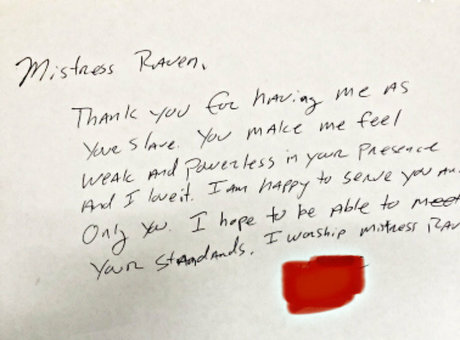 Mistress Raven,
Thank you for having me as
your slave. You make me feel
weak and powerless in your presence
and I love it. I am happy to serve you
Only you. I hope to be able to meet
your standards. I worship mistress